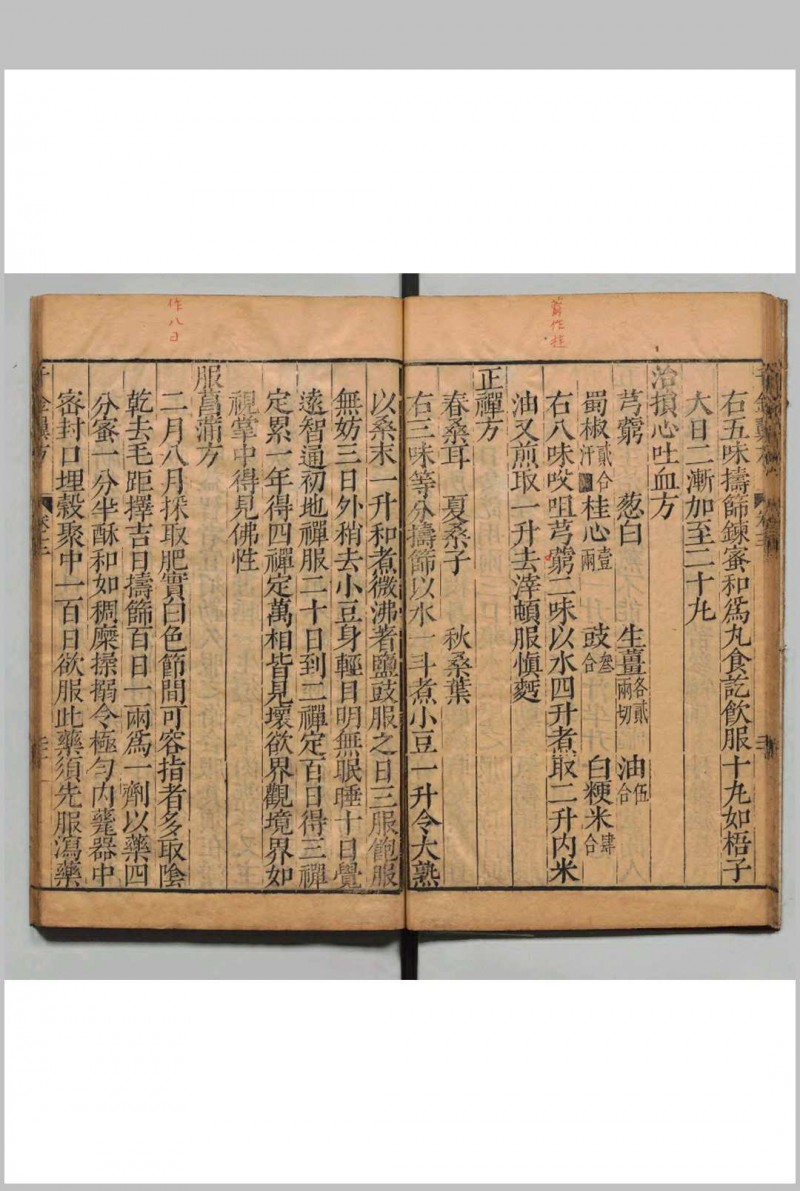 右五味擣篩鍊蜜和爲丸食訖飲服十九如梧子
大日二漸加至二十九
治損心吐血方
芎藭 葱白 生薑各貳兩切 油伍合
蜀椒貳合汗 桂心壹兩 豉叄合 白粳米肆合
右八味㕮咀芎藭二味以水四升煮取二升内米
油又煎取一升去滓頓服愼麪
正禪方
春桑耳 夏桑子 秋桑葉
右三味等分擣篩以水一斗煮小豆一升令大熟
以桑末一升和煮微沸著鹽豉服之日三服飽服
無妨三日外稍去小豆身輕目明無眠睡十日覺
遠智通初地禪服二十日到二禪定百日得三禪
定累一年得四禪定萬相皆見壞欲界觀境界如
視掌中得見佛性
服菖蒲方
二月八月採取肥實白色節間可容指者多取陰
乾去毛距擇吉日擣篩百日一兩爲一劑以藥四
分蜜一分半酥和如稠糜搡搦令極匀内甆器中
密封口埋穀聚中一百日欲服此藥須先服瀉藥
千金翼方
作八日